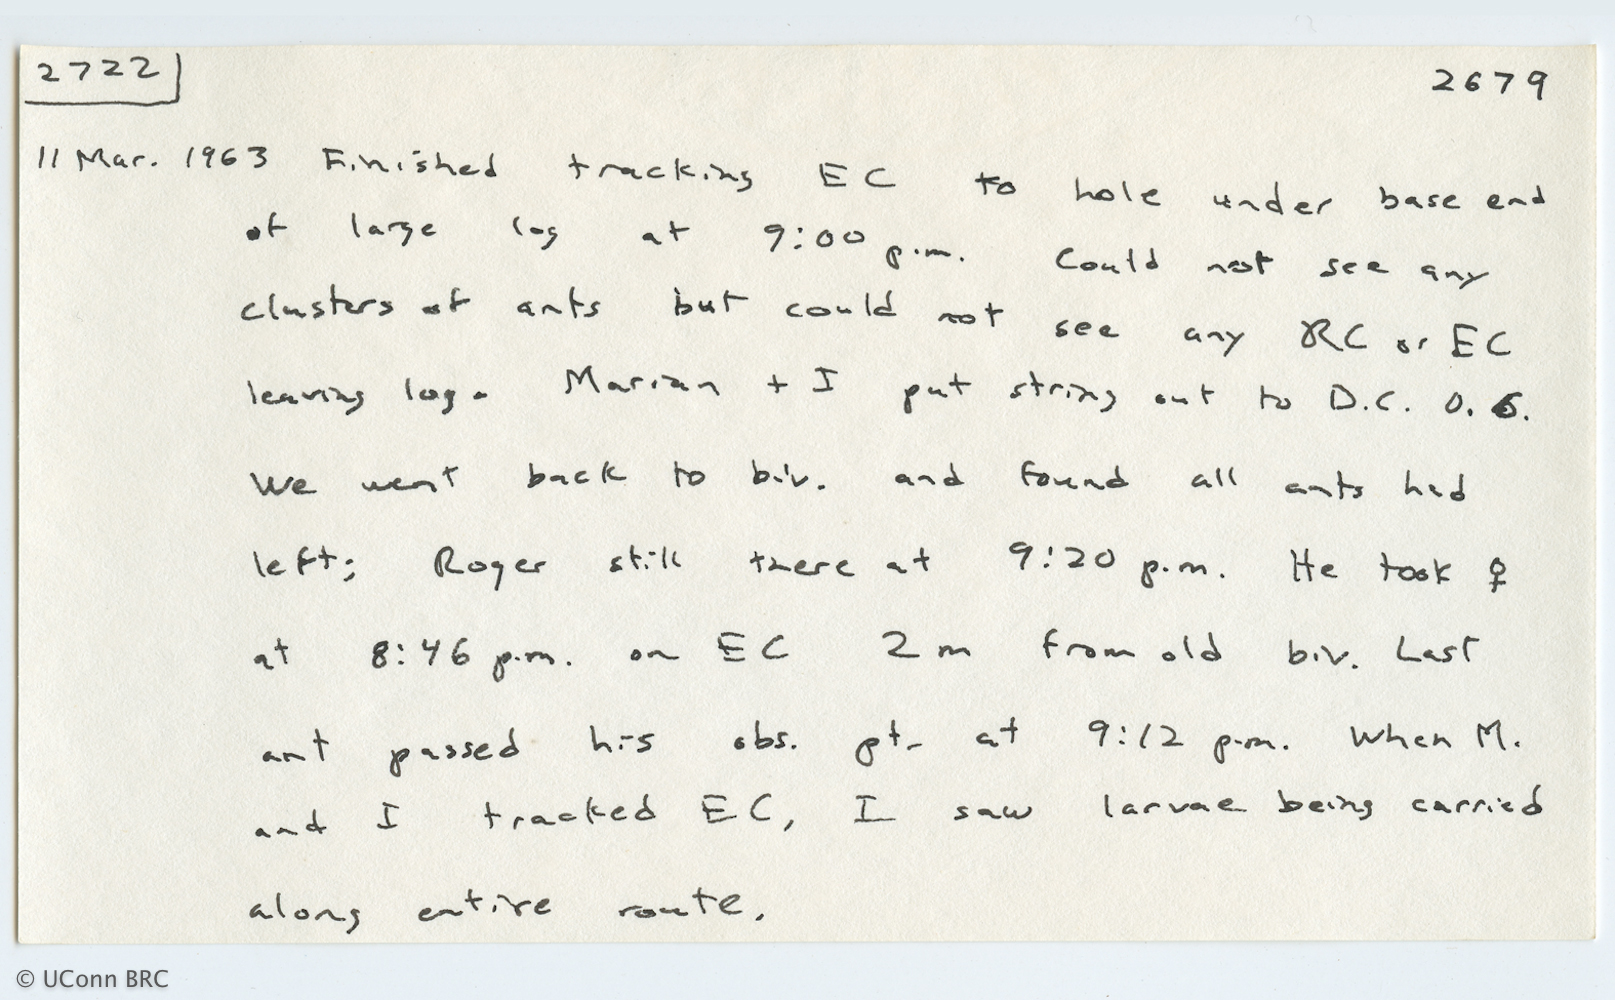 2722
2679
11 Mar. 1963 Finished tracking EC to hole under base end
of large log at 9:00 p.m. Could not see any
clusters of ants but could not see any RC or EC
leaving log. Marian + I put string out to D.C. 0.6.
We went back to biv. and found all ants had
left; Roger still there at 9:20 p.m. He took ♀
at 8:46 p.m. on EC 2 m from old biv. Last
ant passed his obs. pt. at 9:12 p.m. When M.
and I tracked EC, I saw larvae being carried
along entire route.
© UConn BRC